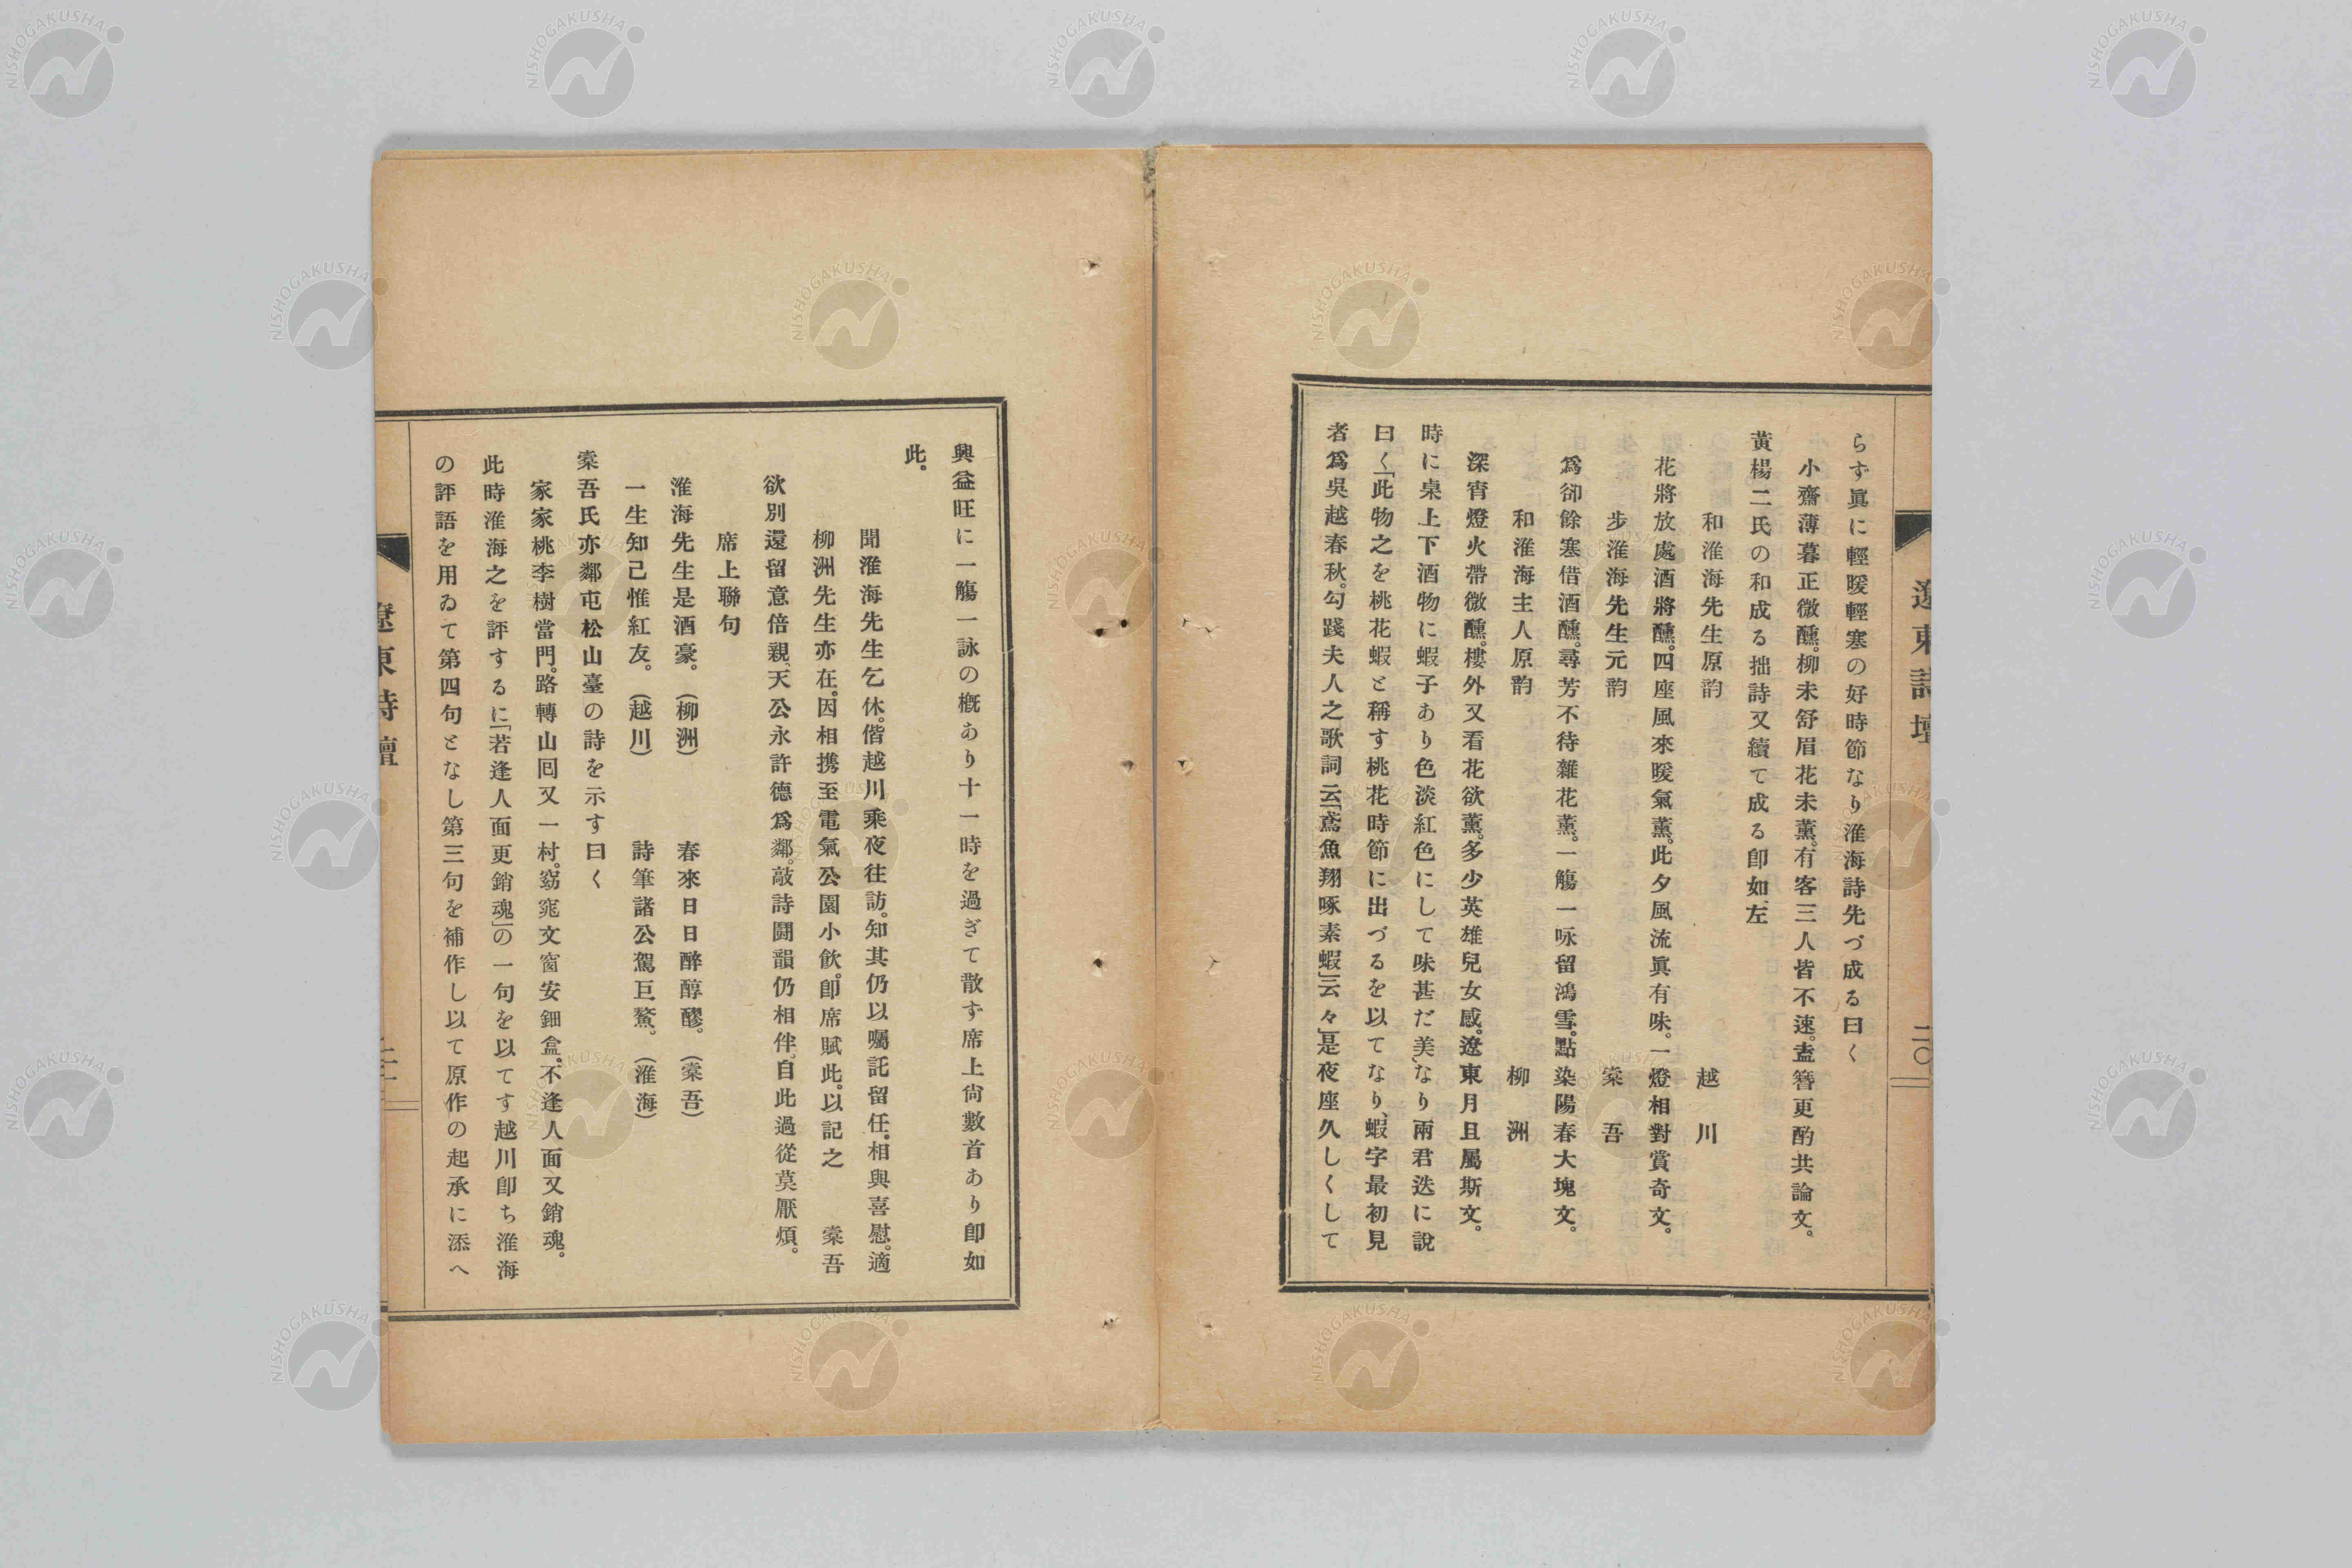 遼東詩壇
二〇
らず眞に輕暖輕寒の好時節なり淮海詩先づ成る曰く
小齋薄暮正微醺。柳未舒眉花未薰。有客三人皆不速。盍簪更酌共論文。
黃楊二氏の和成る拙詩又續て成る卽如左
和淮海先生原韵　越川
花將放處酒將醺。四座風來暖氣薰。此夕風流眞有味。一燈相對賞奇文。
步淮海先生元韵　棠吾
爲卻餘寒借酒醺。尋芳不待雜花薰。一觴一咏留鴻雪。點染陽春大塊文。
和淮海主人原韵　柳洲
深宵燈火帶微醺。樓外又看花欲薰。多少英雄兒女感。遼東月且屬斯文。
時に桌上下酒物に蝦子あり色淡紅色にして味甚だ美なり兩君迭に說
曰く「此物之を桃花蝦と稱す桃花時節に出づるを以てなり、蝦字最初見
者爲吳越春秋。勾踐夫人之歌詞云「鳶魚翔啄素蝦」云々」是夜座久しくして
興益旺に一觴一詠の槪あり十一時を過ぎて散ず席上尙數首あり卽如
此。
聞淮海先生乞休。偕越川乘夜往訪。知其仍以囑託留任。相與喜慰。適
柳洲先生亦在。因相携至電氣公園小飮。卽席賦此。以記之　棠吾
欲別還留意倍親、天公永許德爲鄰。敲詩鬪韻仍相伴、自此過從莫厭煩。
席上聯句
淮海先生是酒豪。（柳洲）　春來日日醉醇醪。（棠吾）
一生知己惟紅友。（越川）　詩筆諸公駕巨鰲。（淮海）
棠吾氏亦鄰屯松山臺の詩を示す曰く
家家桃李樹當門。路轉山囘又一村。窈窕文窗安鈿盒。不逢人面又銷魂。
此時淮海之を評するに「若逢人面更銷魂」の一句を以てす越川卽ち淮海
の評語を用ゐて第四句となし第三句を補作し以て原作の起承に添へ
遼東詩壇
二一
NISHOGAKUSHA